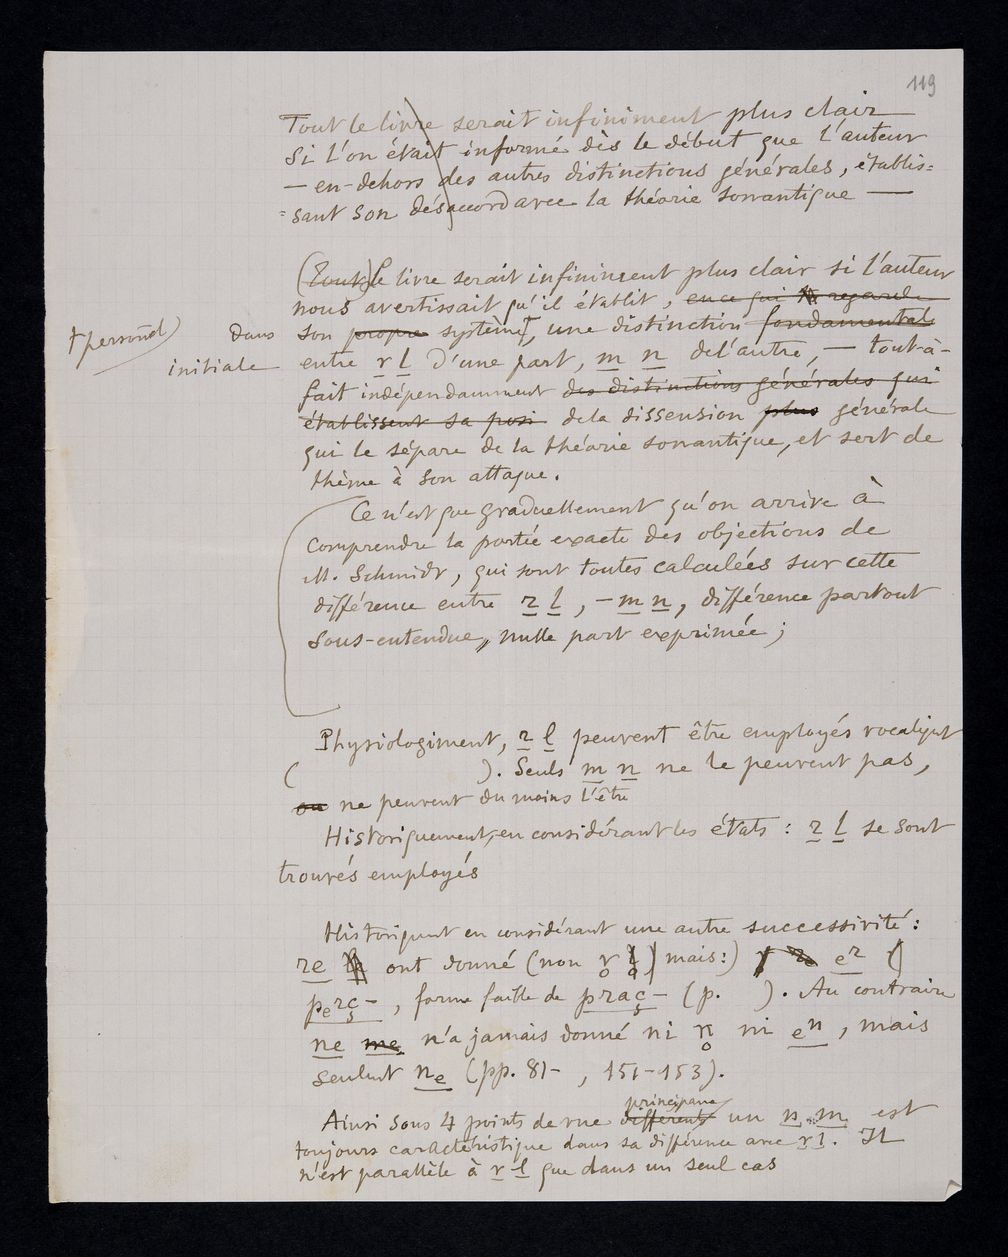 119
Tout le livre serait infiniment plus clair
Si l'on était informé dès le début que l'auteur
— en-dehors des autres distinctions générales, établis=
=sant son désaccord avec la théorie sonantique —
(Tout) le livre serait infiniment plus clair si l'auteur
nous avertissait qu'il établit, en ce qui regarde
son propre système, une distinction fondamentale
† personnel) dans
initiale entre r l d'une part, m n de l'autre, — tout-à-
fait indépendamment des distinctions générales qui
établissent sa posi de la dissension plus générale
qui le sépare de la théorie sonantique, et sert de
thème à son attaque.
Ce n'est que graduellement qu'on arrive à
comprendre la portée exacte des objections de
M. Schmidt, qui sont toutes calculées sur cette
différence entre r l, – m n, différence partout
sous-entendue, nulle part exprimée;
Physiologiment, r l peuvent être employés vocaliqut
( ). Seuls m n ne le peuvent pas,
ou ne peuvent du moins l'être
Historiquement, en considérant les états : r l se sont
trouvés employés
Historiquent en considérant une autre successivité :
re ont donné (non r̥ l̥) mais :) er
perç-, forme faible de praç- (p. ). Au contraire
ne me n'a jamais donné ni n̥ ni en, mais
seulent ne (pp. 81- , 151-153).
Ainsi sous 4 points de vue différents principaux un n m est
toujours caractéristique dans sa différence avec r l. Il
n'est parallèle à r l que dans un seul cas